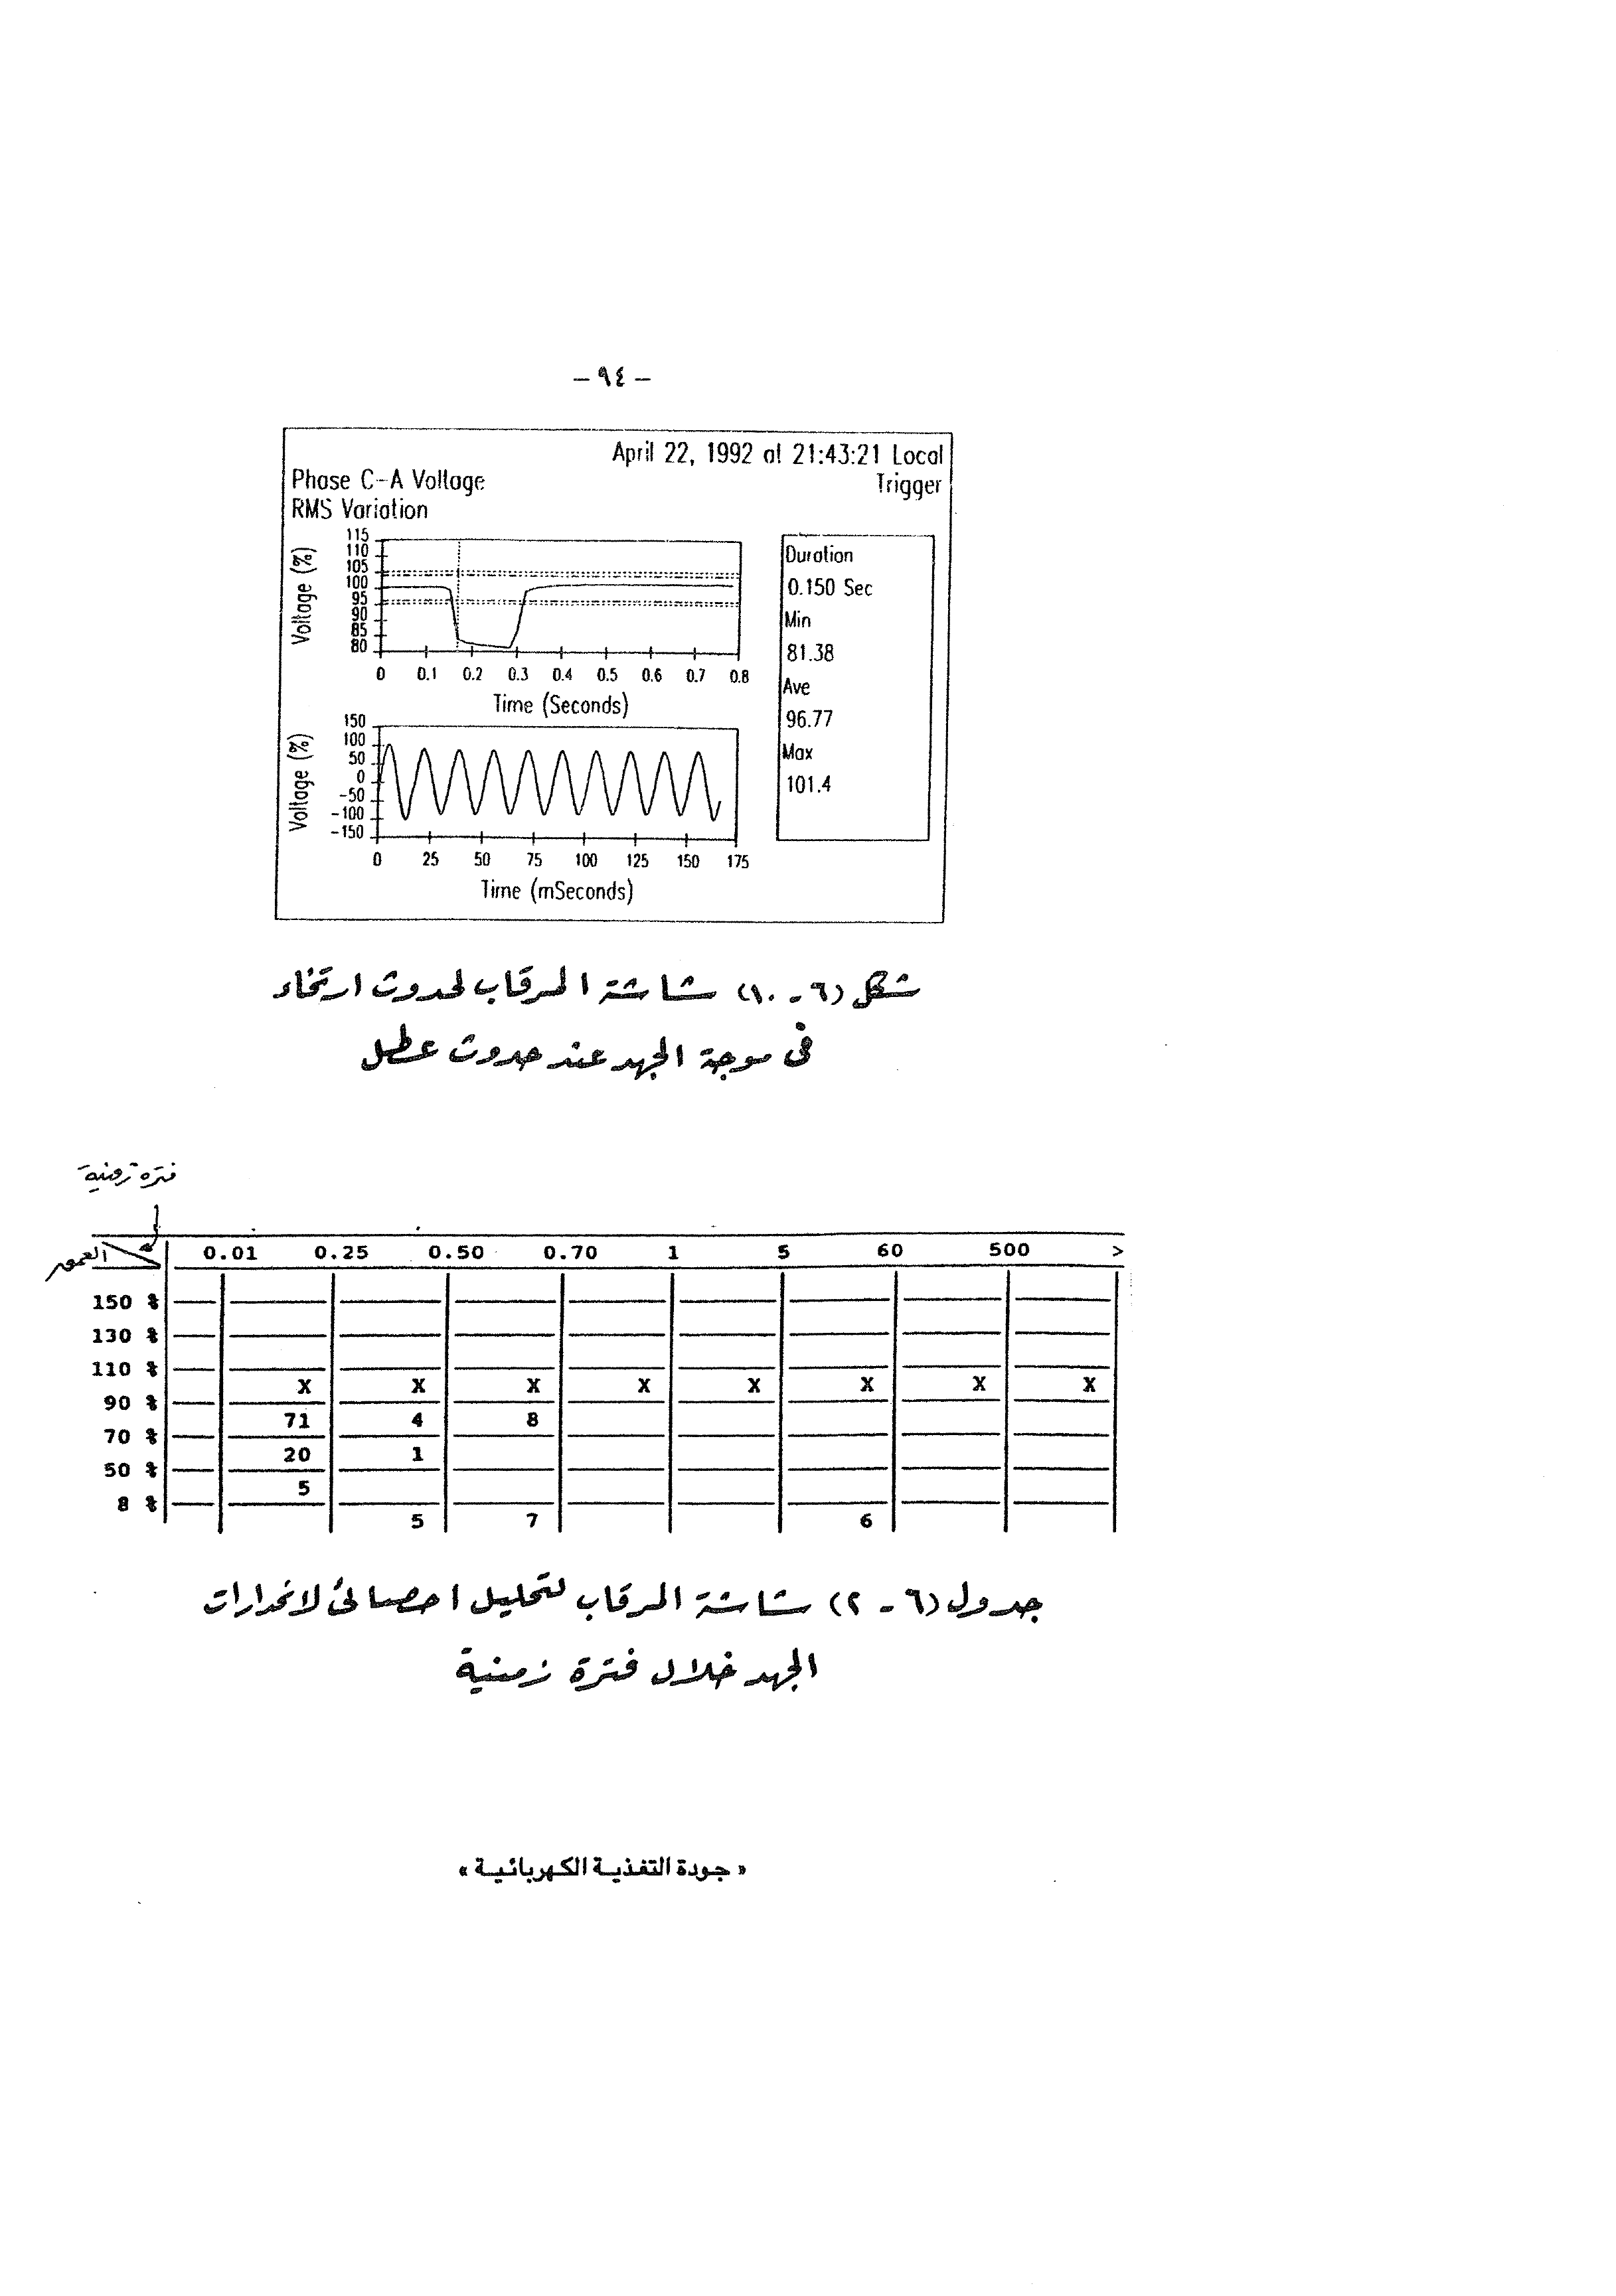 - ٩٤ -
April 22, 1992 at 21:43:21 Local
Phase C-A Voltage
Trigger
RMS Variation
Voltage (%)
115
110
105
100
95
90
85
80
0 0.1 0.2 0.3 0.4 0.5 0.6 0.7 0.8
Time (Seconds)
Duration
0.150 Sec
Min
81.38
Ave
96.77
Max
101.4
Voltage (%)
150
100
50
0
-50
-100
-150
0 25 50 75 100 125 150 175
Time (mSeconds)
شكل (٦-١٠) شاشة المرقاب لحدوث ارتخاء
فى موجة الجهد عند حدوث عطل
فترة زمنية
العمق
0.01 0.25 0.50 0.70 1 5 60 500 >
150 %
130 %
110 %
X X X X X X X X
90 %
71 4 8
70 %
20 1
50 %
5
8 %
5 7 6
جدول (٦-٢) شاشة المرقاب لتحليل احصائى لانحدارات
الجهد خلال فترة زمنية
« جودة التغذية الكهربائية »